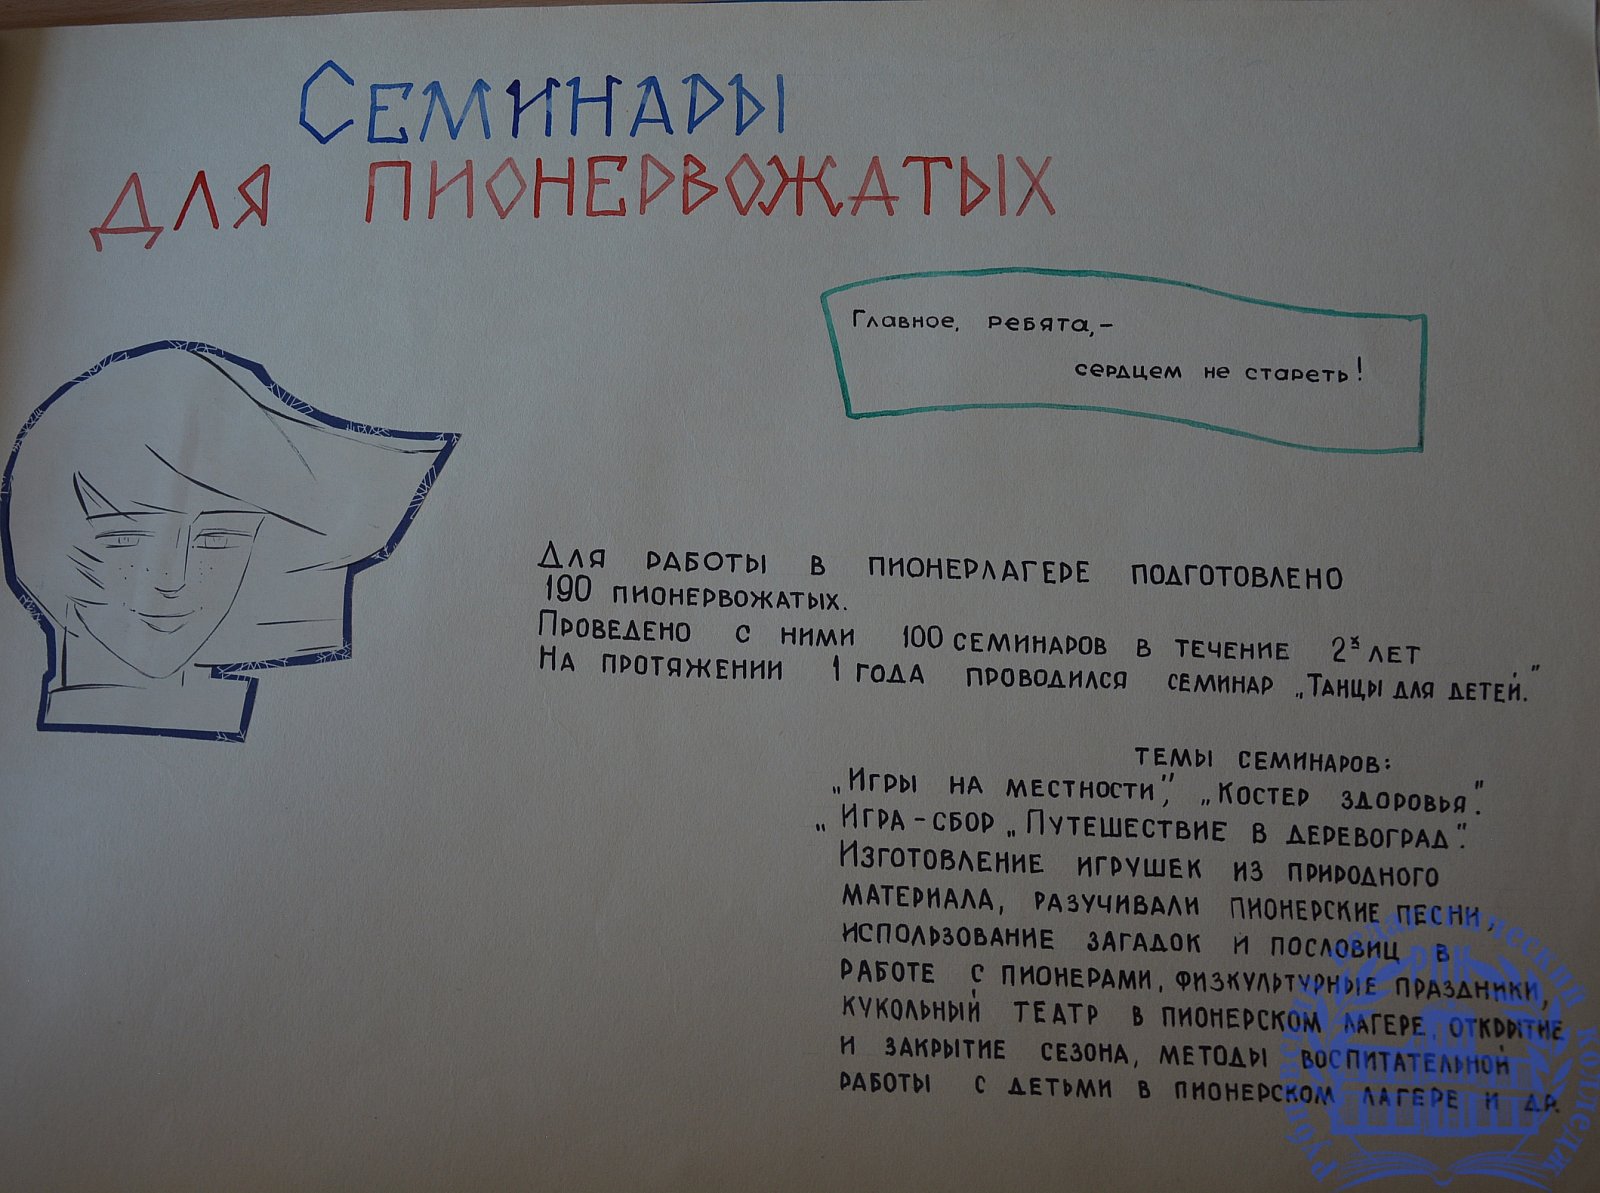 Семинары
для пионервожатых
Главное, ребята,-
сердцем не стареть!
Для работы в пионерлагере подготовлено
190 пионервожатых.
Проведено с ними 100 семинаров в течение 2х лет
На протяжении 1 года проводился семинар „Танцы для детей."
темы семинаров:
„Игры на местности", „Костер здоровья".
„Игра-сбор „Путешествие в деревоград".
Изготовление игрушек из природного
материала, разучивали пионерские песни,
использование загадок и пословиц в
работе с пионерами, физкультурные праздники,
кукольный театр в пионерском лагере, открытие
и закрытие сезона, методы воспитательной
работы с детьми в пионерском лагере и др.
Рубцовский педагогический колледж
РПК